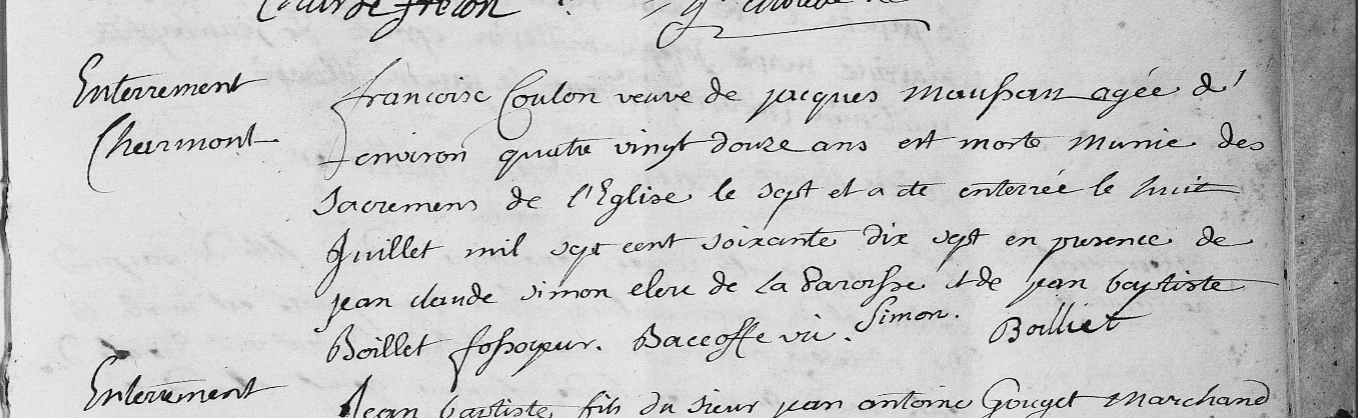 Enterrement
Charmont
francoise Coulon veuve de jacques Maussan agée d'
environ quatre vingt douze ans est morte munie des
sacremens de l'Eglise le sept et a ete enterrée le huit
Juillet mil sept cent soixante dix sept en presence de
jean claude simon clerc de La Paroisse et de jean baptiste
Boillet fossoyeur. Baccoffe vic. Simon. Boilliet
Enterrement
Jean baptiste fils du sieur jean antoine Gouget Marchand